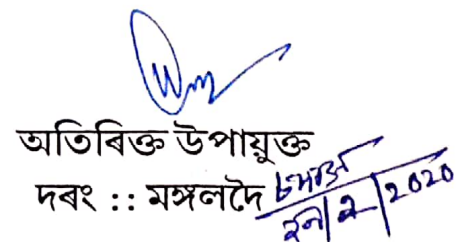 অতিৰিক্ত উপায়ুক্ত
দৰং :: মঙ্গলদৈ
2020